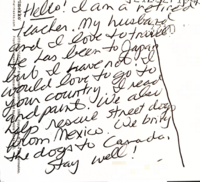 Hello! I am a retired
teacher. My husband
and I love to travel.
He has been to Japan
but I have not. I
would love to go to
your country. I read
and paint. We also
help rescue street dogs
from Mexico. We bring
the dogs to Canada.
Stay well!